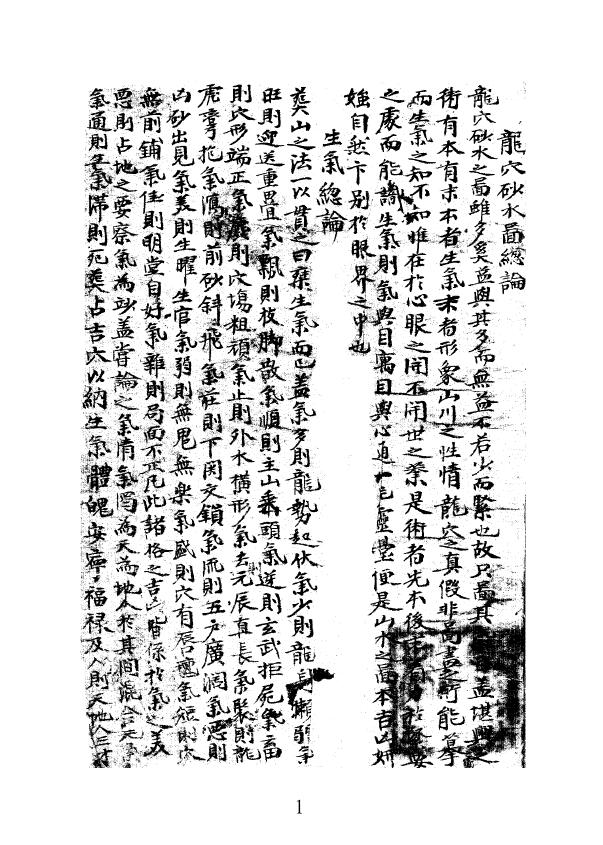 龍穴砂水啚總論
龍穴砂水之啚雖多奚益與其多而無益不若少而緊也故只啚其 盖堪輿之
術有本有末本者生氣末者形象山川之性情龍穴之真假非啚書之所能
而生氣之知不知惟在於心眼之開不開世之業是術者先本後末 於
之處而能識生氣則氣與目寓目與心通 靈臺便是山水之啚本吉凶妍
媸自然卞別於眼界之中也
生氣總論
葬山之法一以貫之曰葬生氣而已盖氣多則龍勢起伏氣少則龍身懶弱氣
旺則迎送重疊氣飄則枝脚散氣順則主山垂頭氣逆則玄武拒屍氣畜
則穴形端正氣 則穴塲粗頑氣止則外水橫形氣去元辰直長氣聚則龍
虎 抱氣 則前砂斜飛氣莊則下関交鎖氣 則五戶廣濶氣惡則
凶砂出見氣美則生曜生官氣弱則無鬼無樂氣盛則穴有唇 氣 則穴
無前鋪氣佳則明堂自好氣雜則局面不正凡此諸格之吉凶皆係於氣之美
惡則占地之要察氣為 盖嘗論之氣清氣濁為天為地人於其間混合元
氣通則生氣滞則死葬占吉穴以納生氣體魄安寧福禄及人則天地人三才